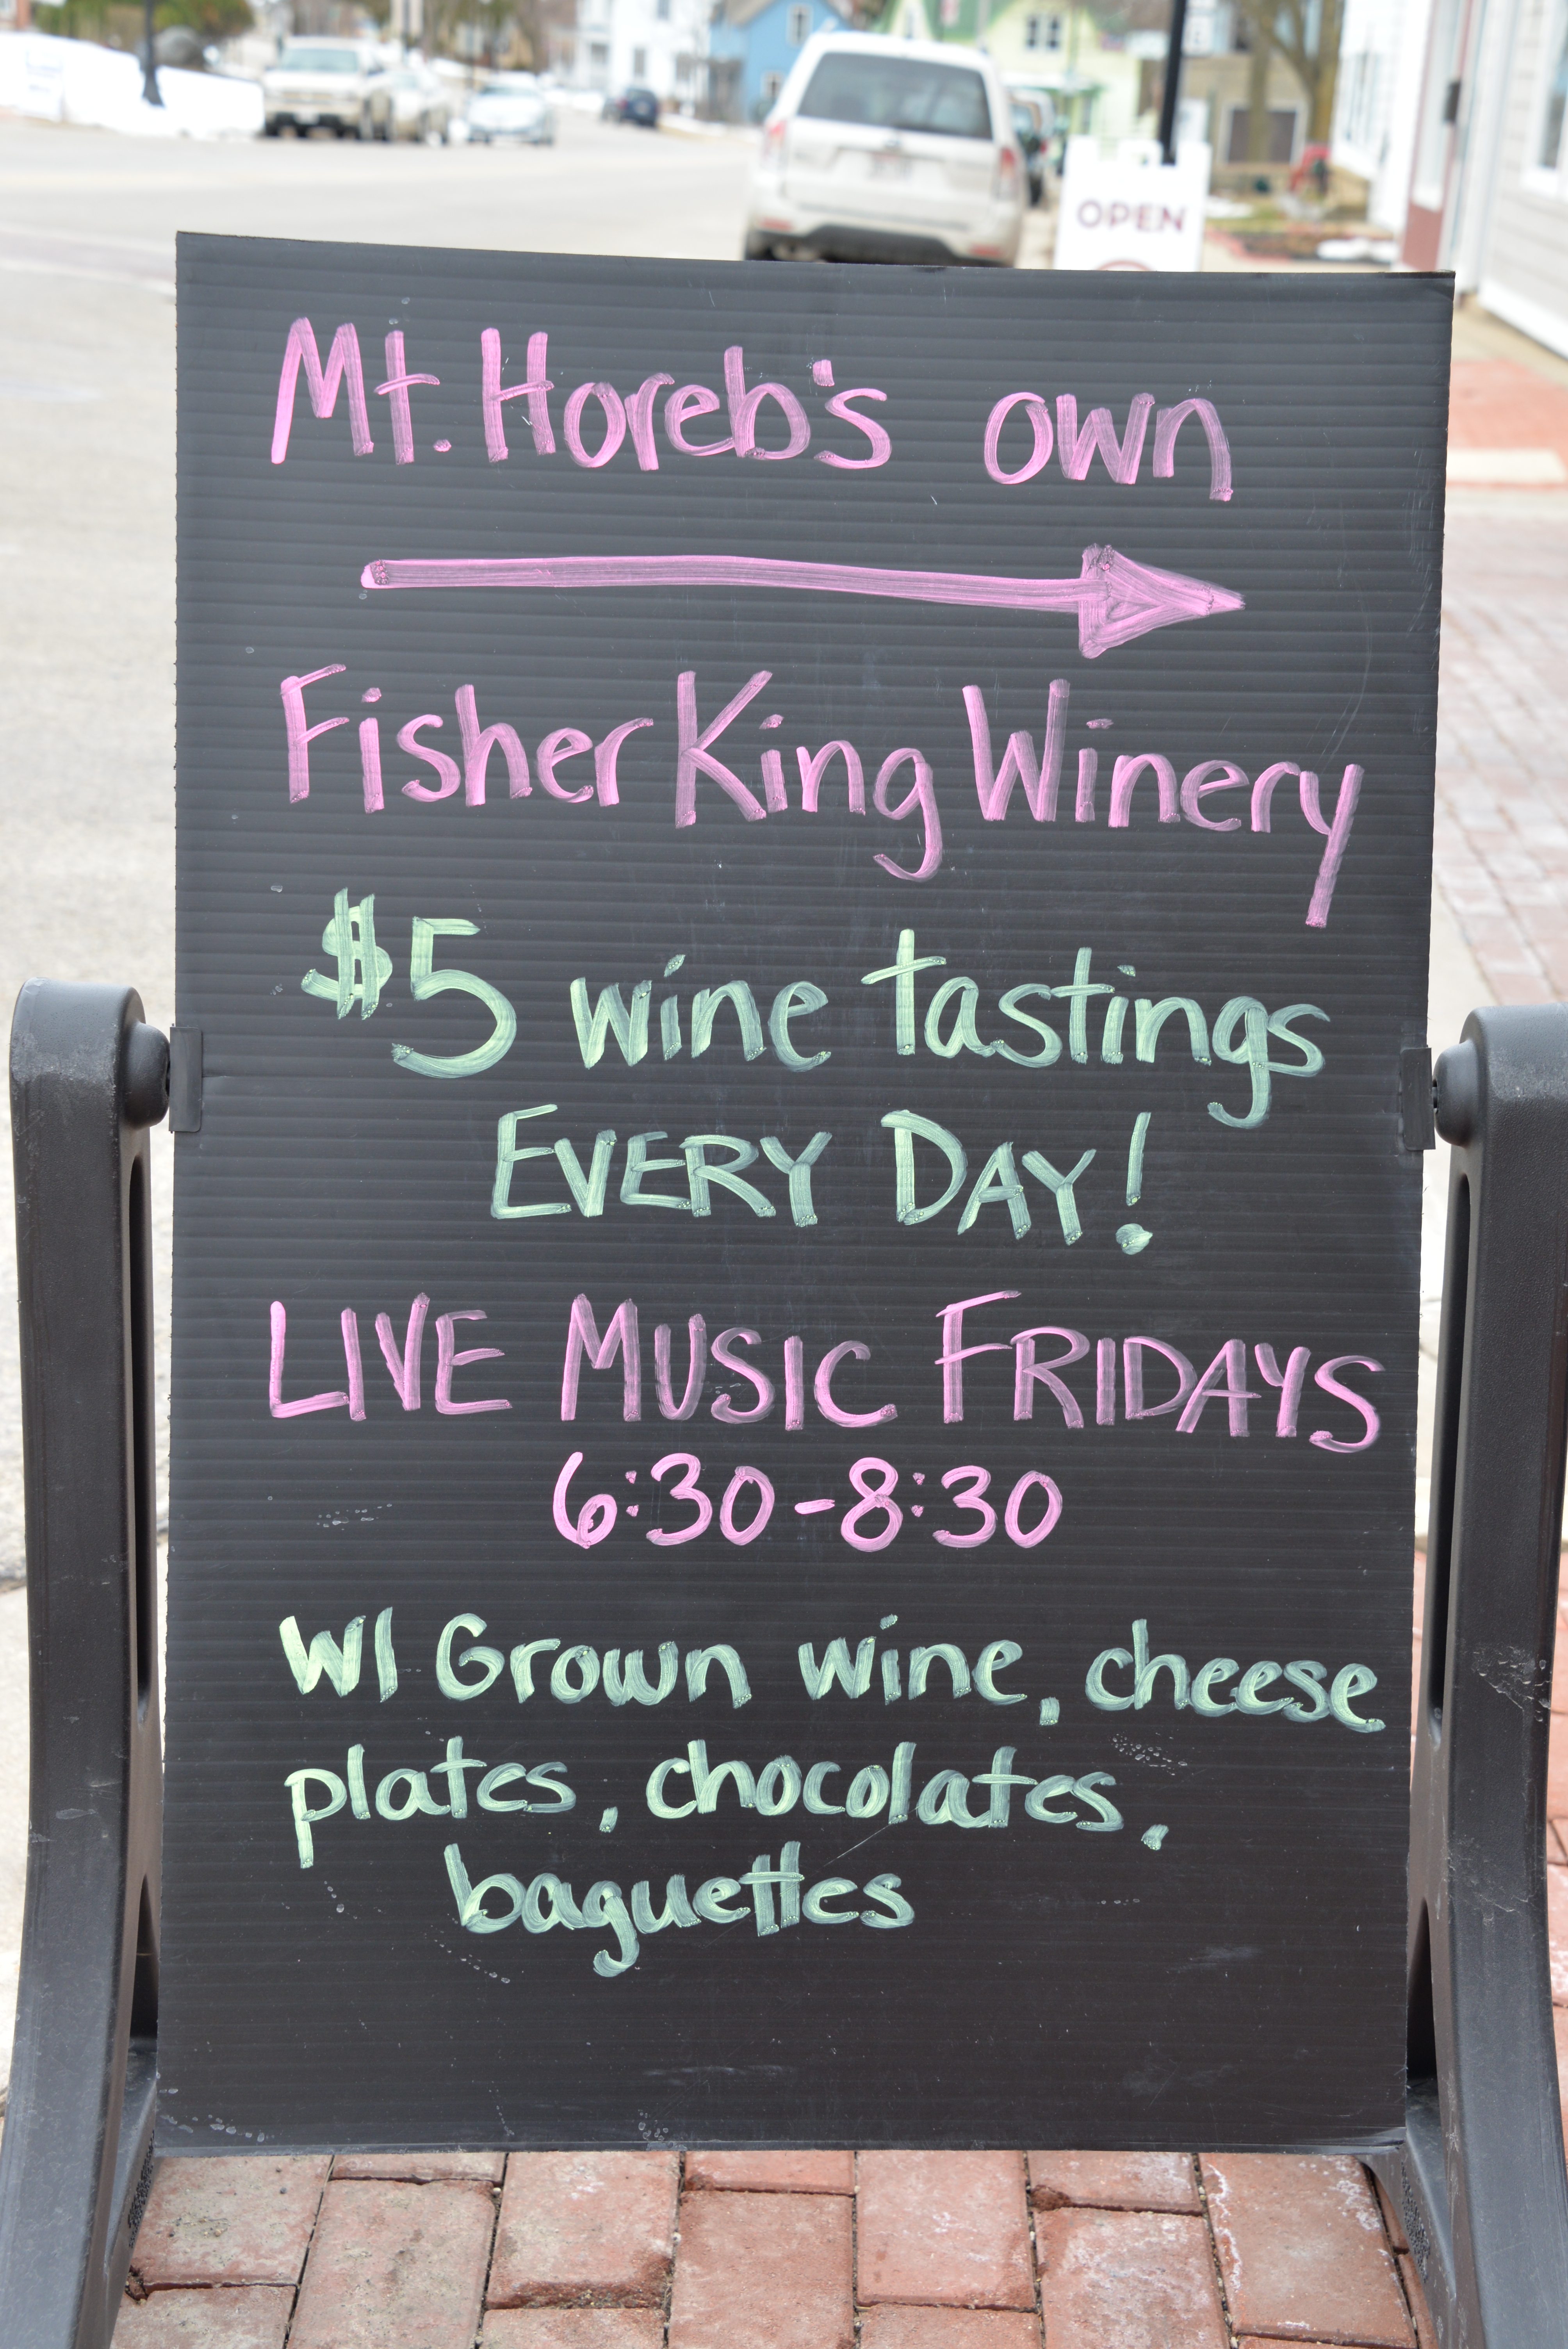 OPEN
Mt. Horeb's own
Fisher King Winery
$5 wine tastings
EVERY DAY!
LIVE MUSIC FRIDAYS
6:30-8:30
WI Grown wine, cheese
plates, chocolates,
baguettes